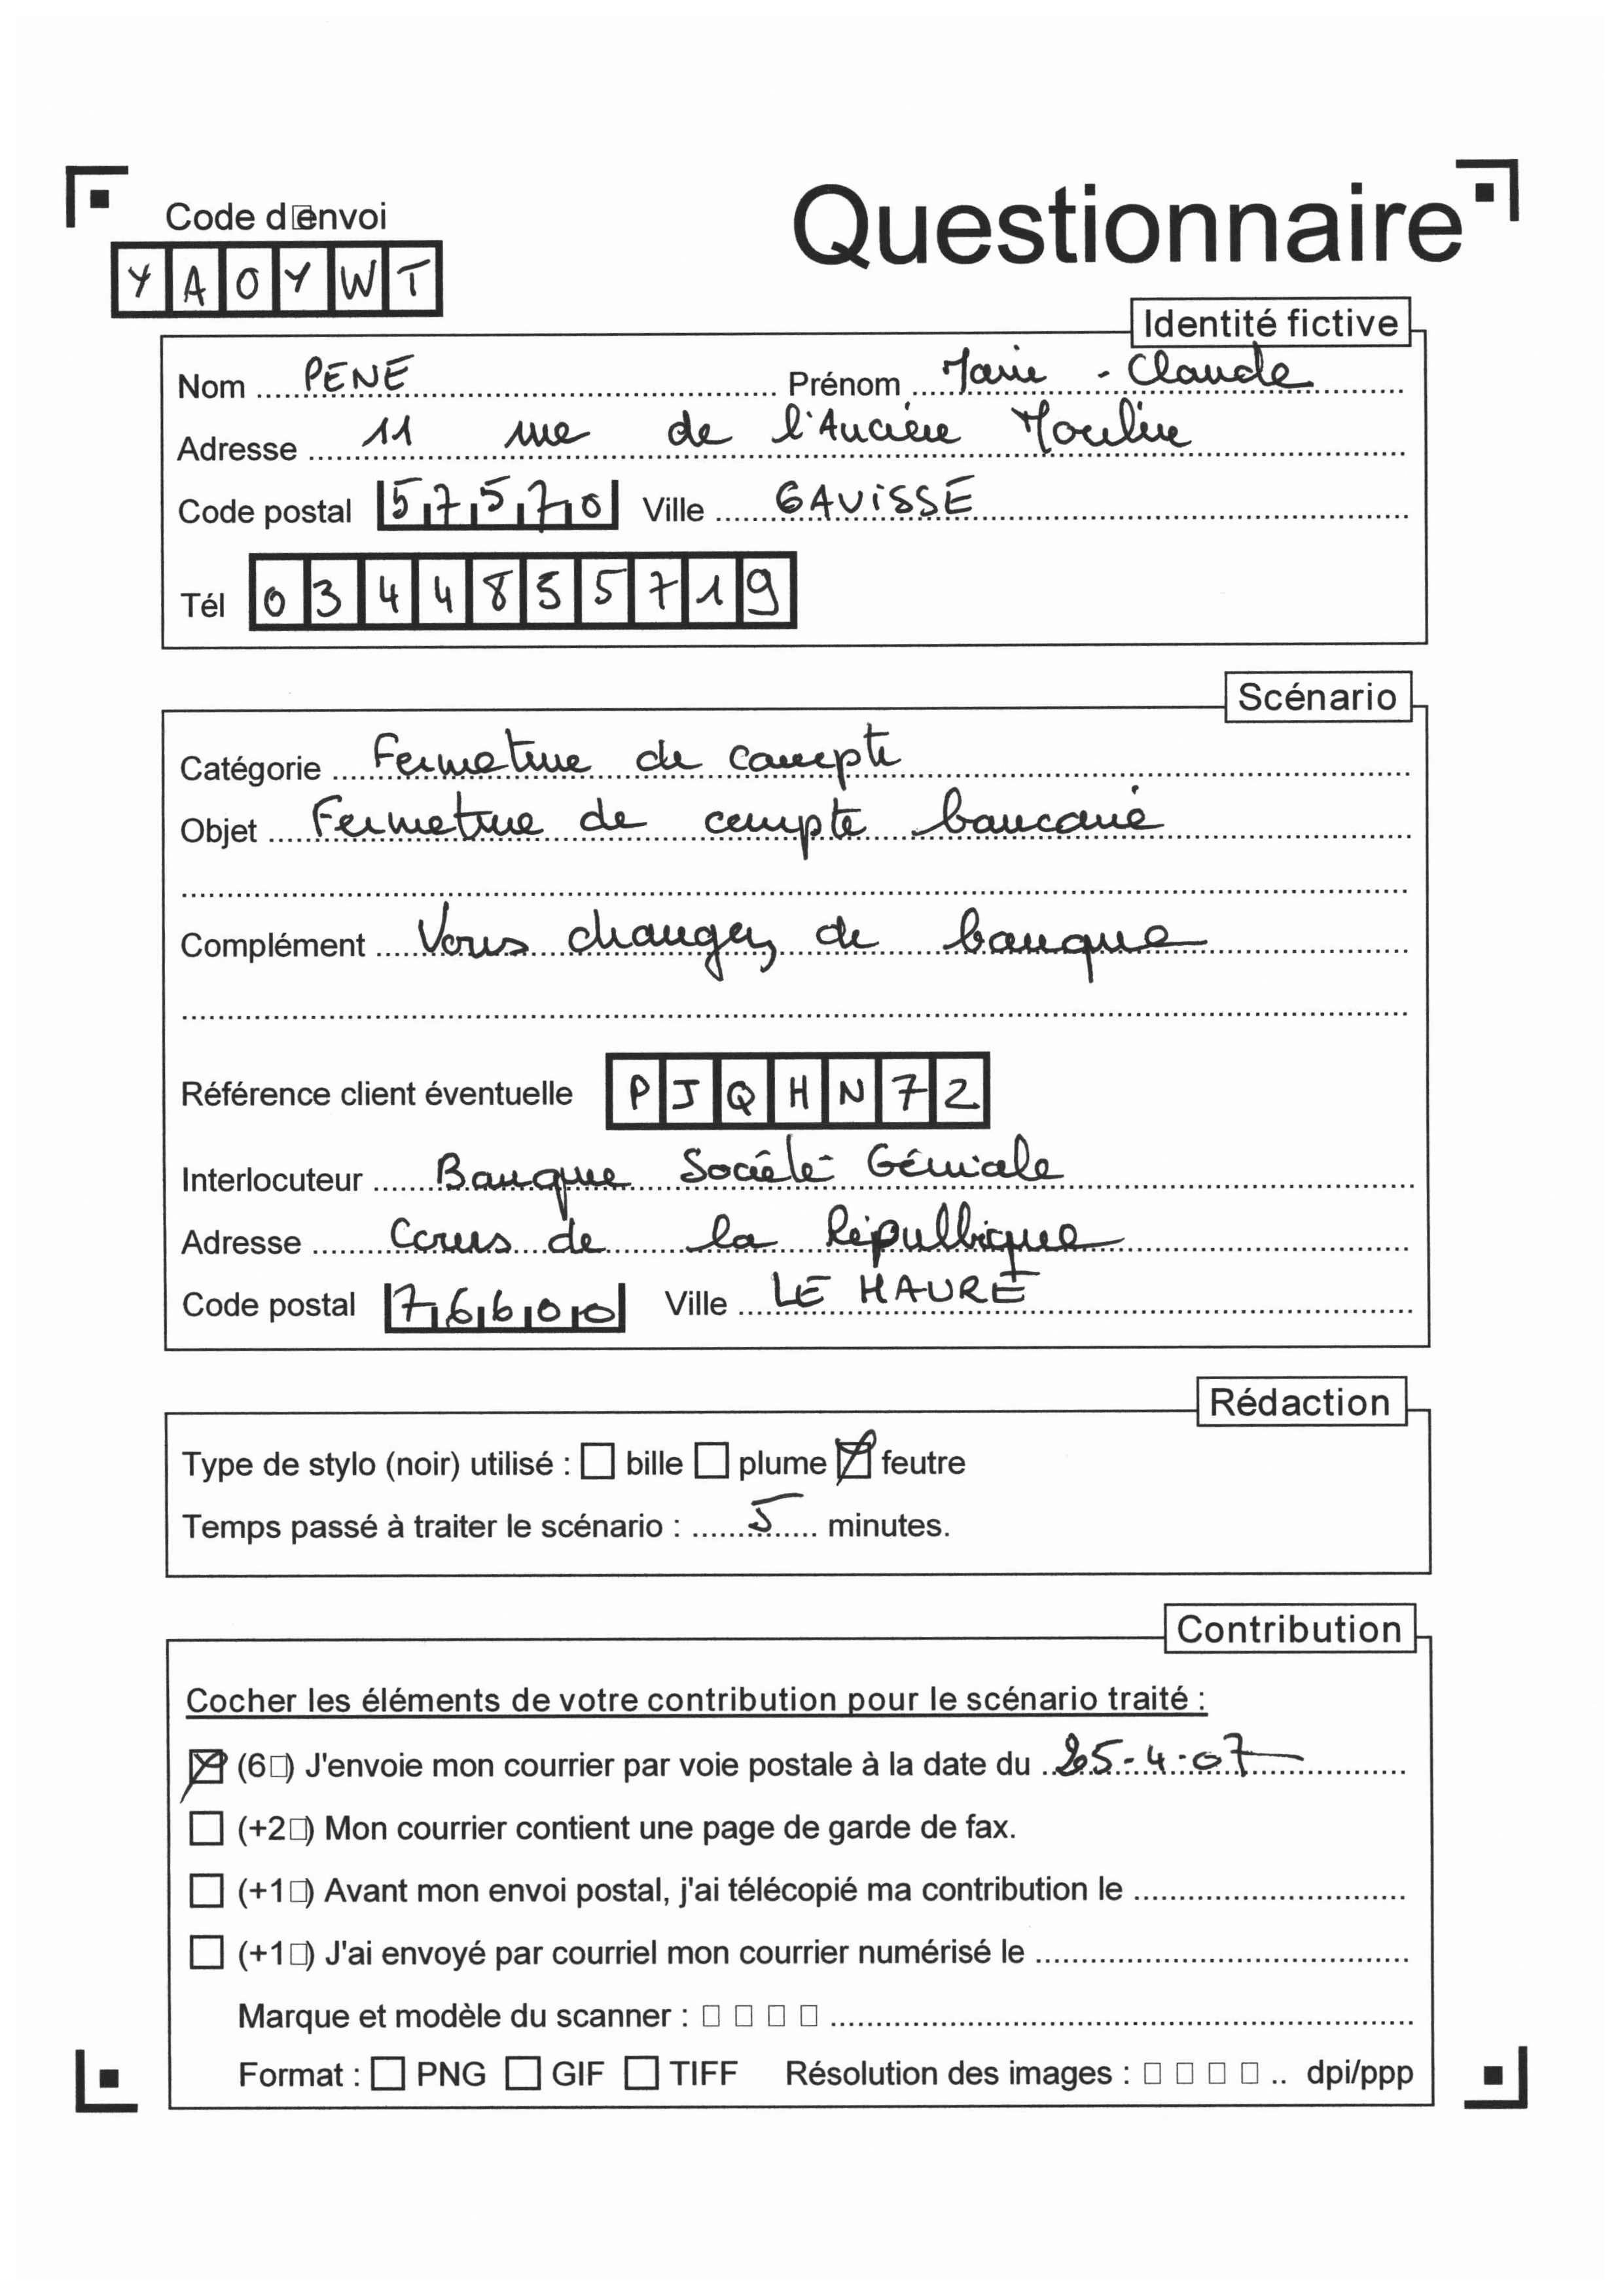 Code d□envoi
Questionnaire
Y A O Y W T
Identité fictive
Nom PENE Prénom Marie - Claude
Adresse 11 rue de l'Anciene Moulin
Code postal 57570 Ville GAVISSE
Tél 0344835719
Scénario
Catégorie Fermeture de compte
Objet Fermeture de compte bancaire
Complément Vous changez de banque
Référence client éventuelle PJQHN72
Interlocuteur Banque Société Géniale
Adresse Cours de la République
Code postal 76600 Ville LE HAVRE
Rédaction
Type de stylo (noir) utilisé : □ bille □ plume ☒ feutre
Temps passé à traiter le scénario : 5 minutes.
Contribution
Cocher les éléments de votre contribution pour le scénario traité :
☒ (6□) J'envoie mon courrier par voie postale à la date du 25-4-07
□ (+2□) Mon courrier contient une page de garde de fax.
□ (+1□) Avant mon envoi postal, j'ai télécopié ma contribution le
□ (+1□) J'ai envoyé par courriel mon courrier numérisé le
Marque et modèle du scanner : □ □ □ □
Format : □ PNG □ GIF □ TIFF Résolution des images : □ □ □ □ .. dpi/ppp